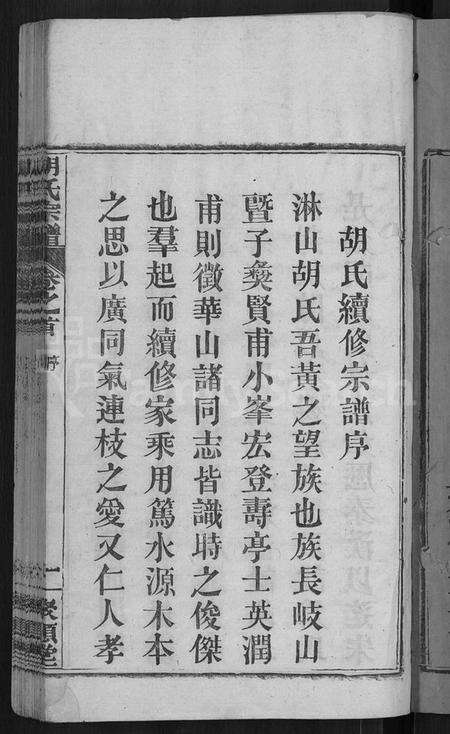 胡氏續修宗譜序
淋山胡氏吾黃之望族也族長岐山
暨子彝賢甫小峯宏登壽亭士英潤
甫則徵華山諸同志皆識時之俊傑
也羣起而續修家乘用篤水源木本
之思以廣同氣連枝之愛又仁人孝
胡氏宗譜 卷之首 序 一